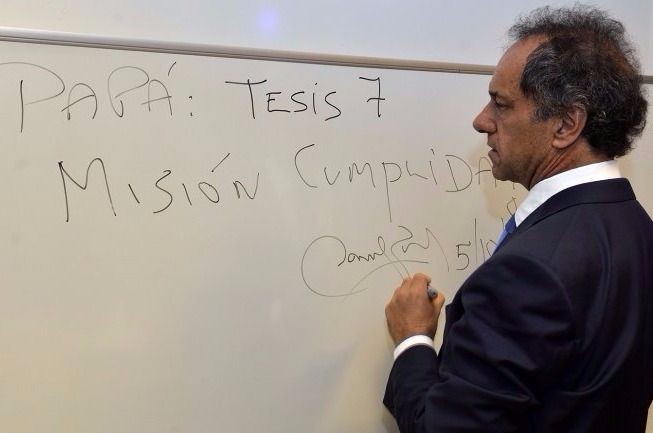 PAPÁ: TESIS 7
MISIÓN CUMPLIDA
5/1